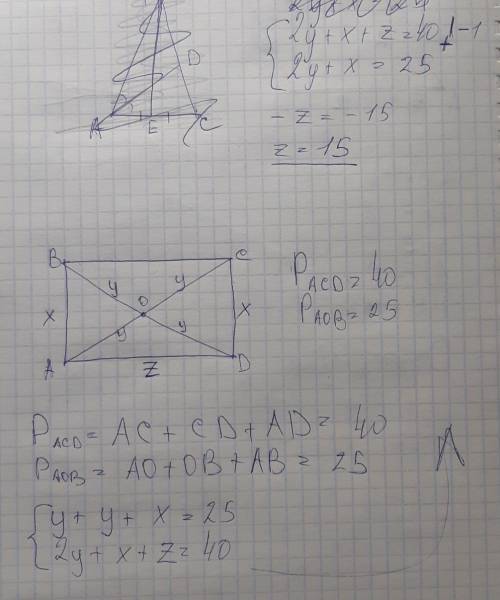 2y + x + z = 40 | · -1
2y + x = 25
- z = - 15
z = 15
D
A E C
B C
y y
x O x
y y
A D
z
P_ACD = 40
P_AOB = 25
P_ACD = AC + CD + AD = 40
P_AOB = AO + OB + AB = 25
y + y + x = 25
2y + x + z = 40